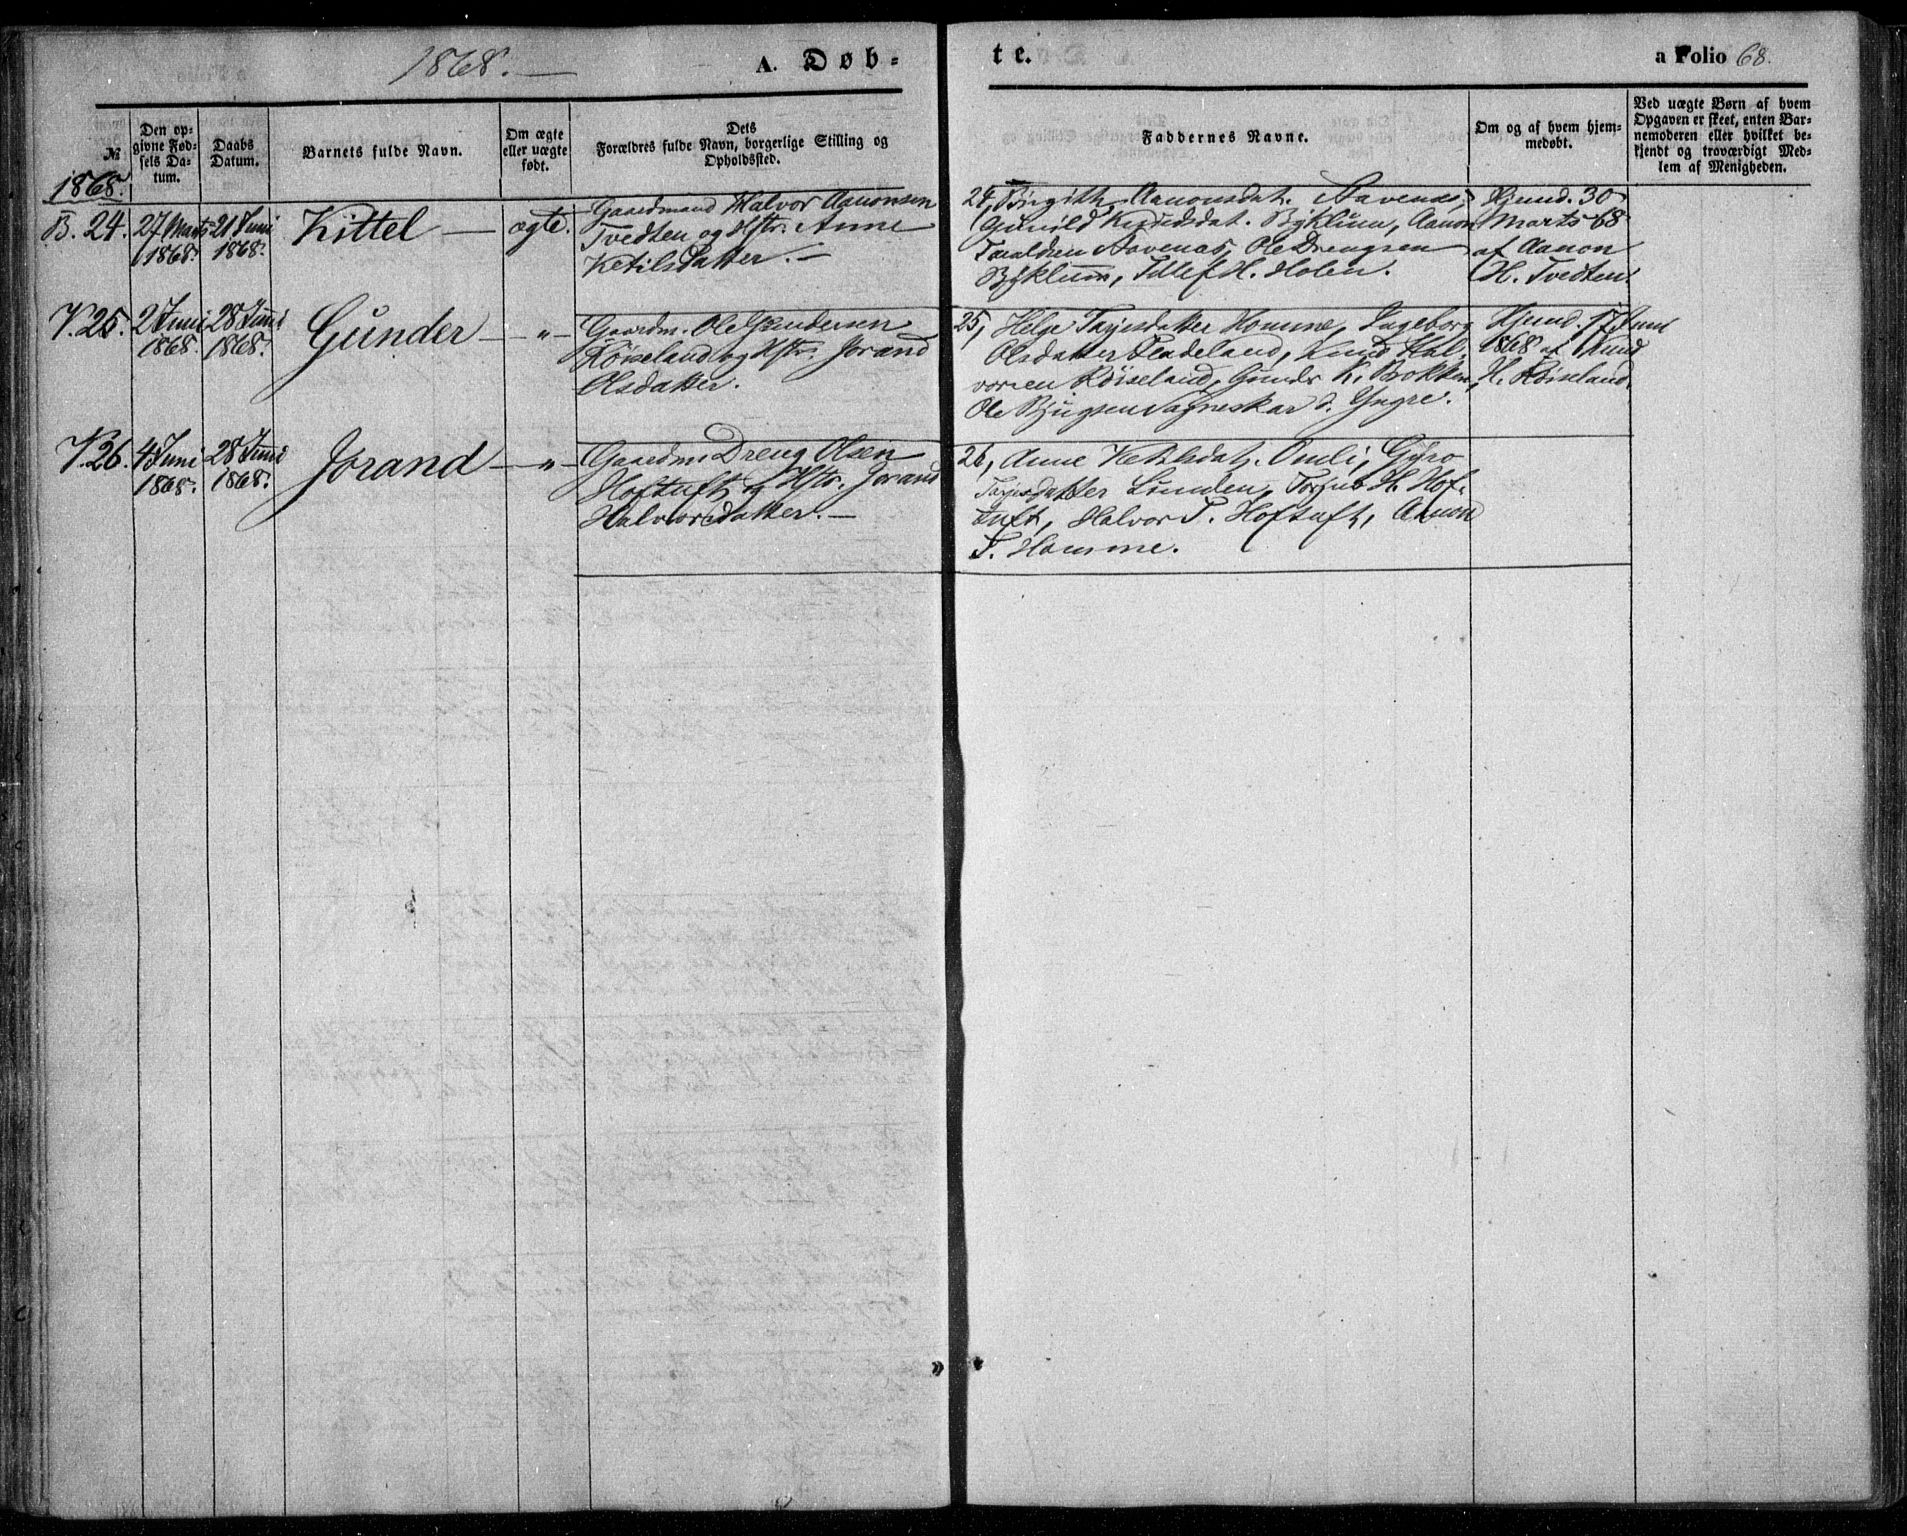 1868. —
A. Døb-
te.
a Folio 68.
№
Den op-
givne Fød-
sels Da-
tum.
Daabs
Datum.
Barnets fulde Navn.
Om ægte
eller uægte
født.
Dets
Forældres fulde Navn, borgerlige Stilling og
Opholdssted.
Faddernes Navne.
Om og af hvem hjem-
medøbt.
Ved uægte Børn af hvem
Opgaven er skeet, enten Bar-
nemoderen eller hvilket be-
kjendt og troværdigt Med-
lem af Menigheden.
1868.
B. 24.
27 Marts
1868.
21 Juni
1868.
Kittel —
ægte.
Gaardmand Halvor Aanonsen
Tvedten og Hstr. Anne
Ketilsdatter. —
24, Birgith Aanonsdat. Aavenæs,
Gunild dat. Byklum, Aanon
Taraldsen Aavenæs, Ole Drengsen
Byklum, Tellef H. Holen.
Hjemd. 30
Marts 68
af Aanon
H. Tvedten.
V. 25.
2 Juni
1868.
28 Juni
1868.
Gunder — „ —
Gaardm. Ole Gundersen
Røiseland og Hstr. Jorand
Olsdatter.
25, Helge Tarjesdatter Homme, Ingeborg
Olsdatter Fladeland, Knud Hal-
vorsen Røiseland, Gunder K. Brokken,
Ole Bjugsen Sagneskar d. Yngre.
Hjemd. 17 Juni
1868 af Knud
H. Røiseland.
V. 26.
4 Juni
1868.
28 Juni
1868.
Jorand — „ —
Gaardm. Dreng Olsen
Hoftuft og Hstr. Jorand
Halvorsdatter. —
26, Anne Ketilsdat. Omli, Gyro
Tarjesdatter Lunden, Torjus H. Hof-
tuft, Halvor T. Hoftuft, Aanon
T. Homme.